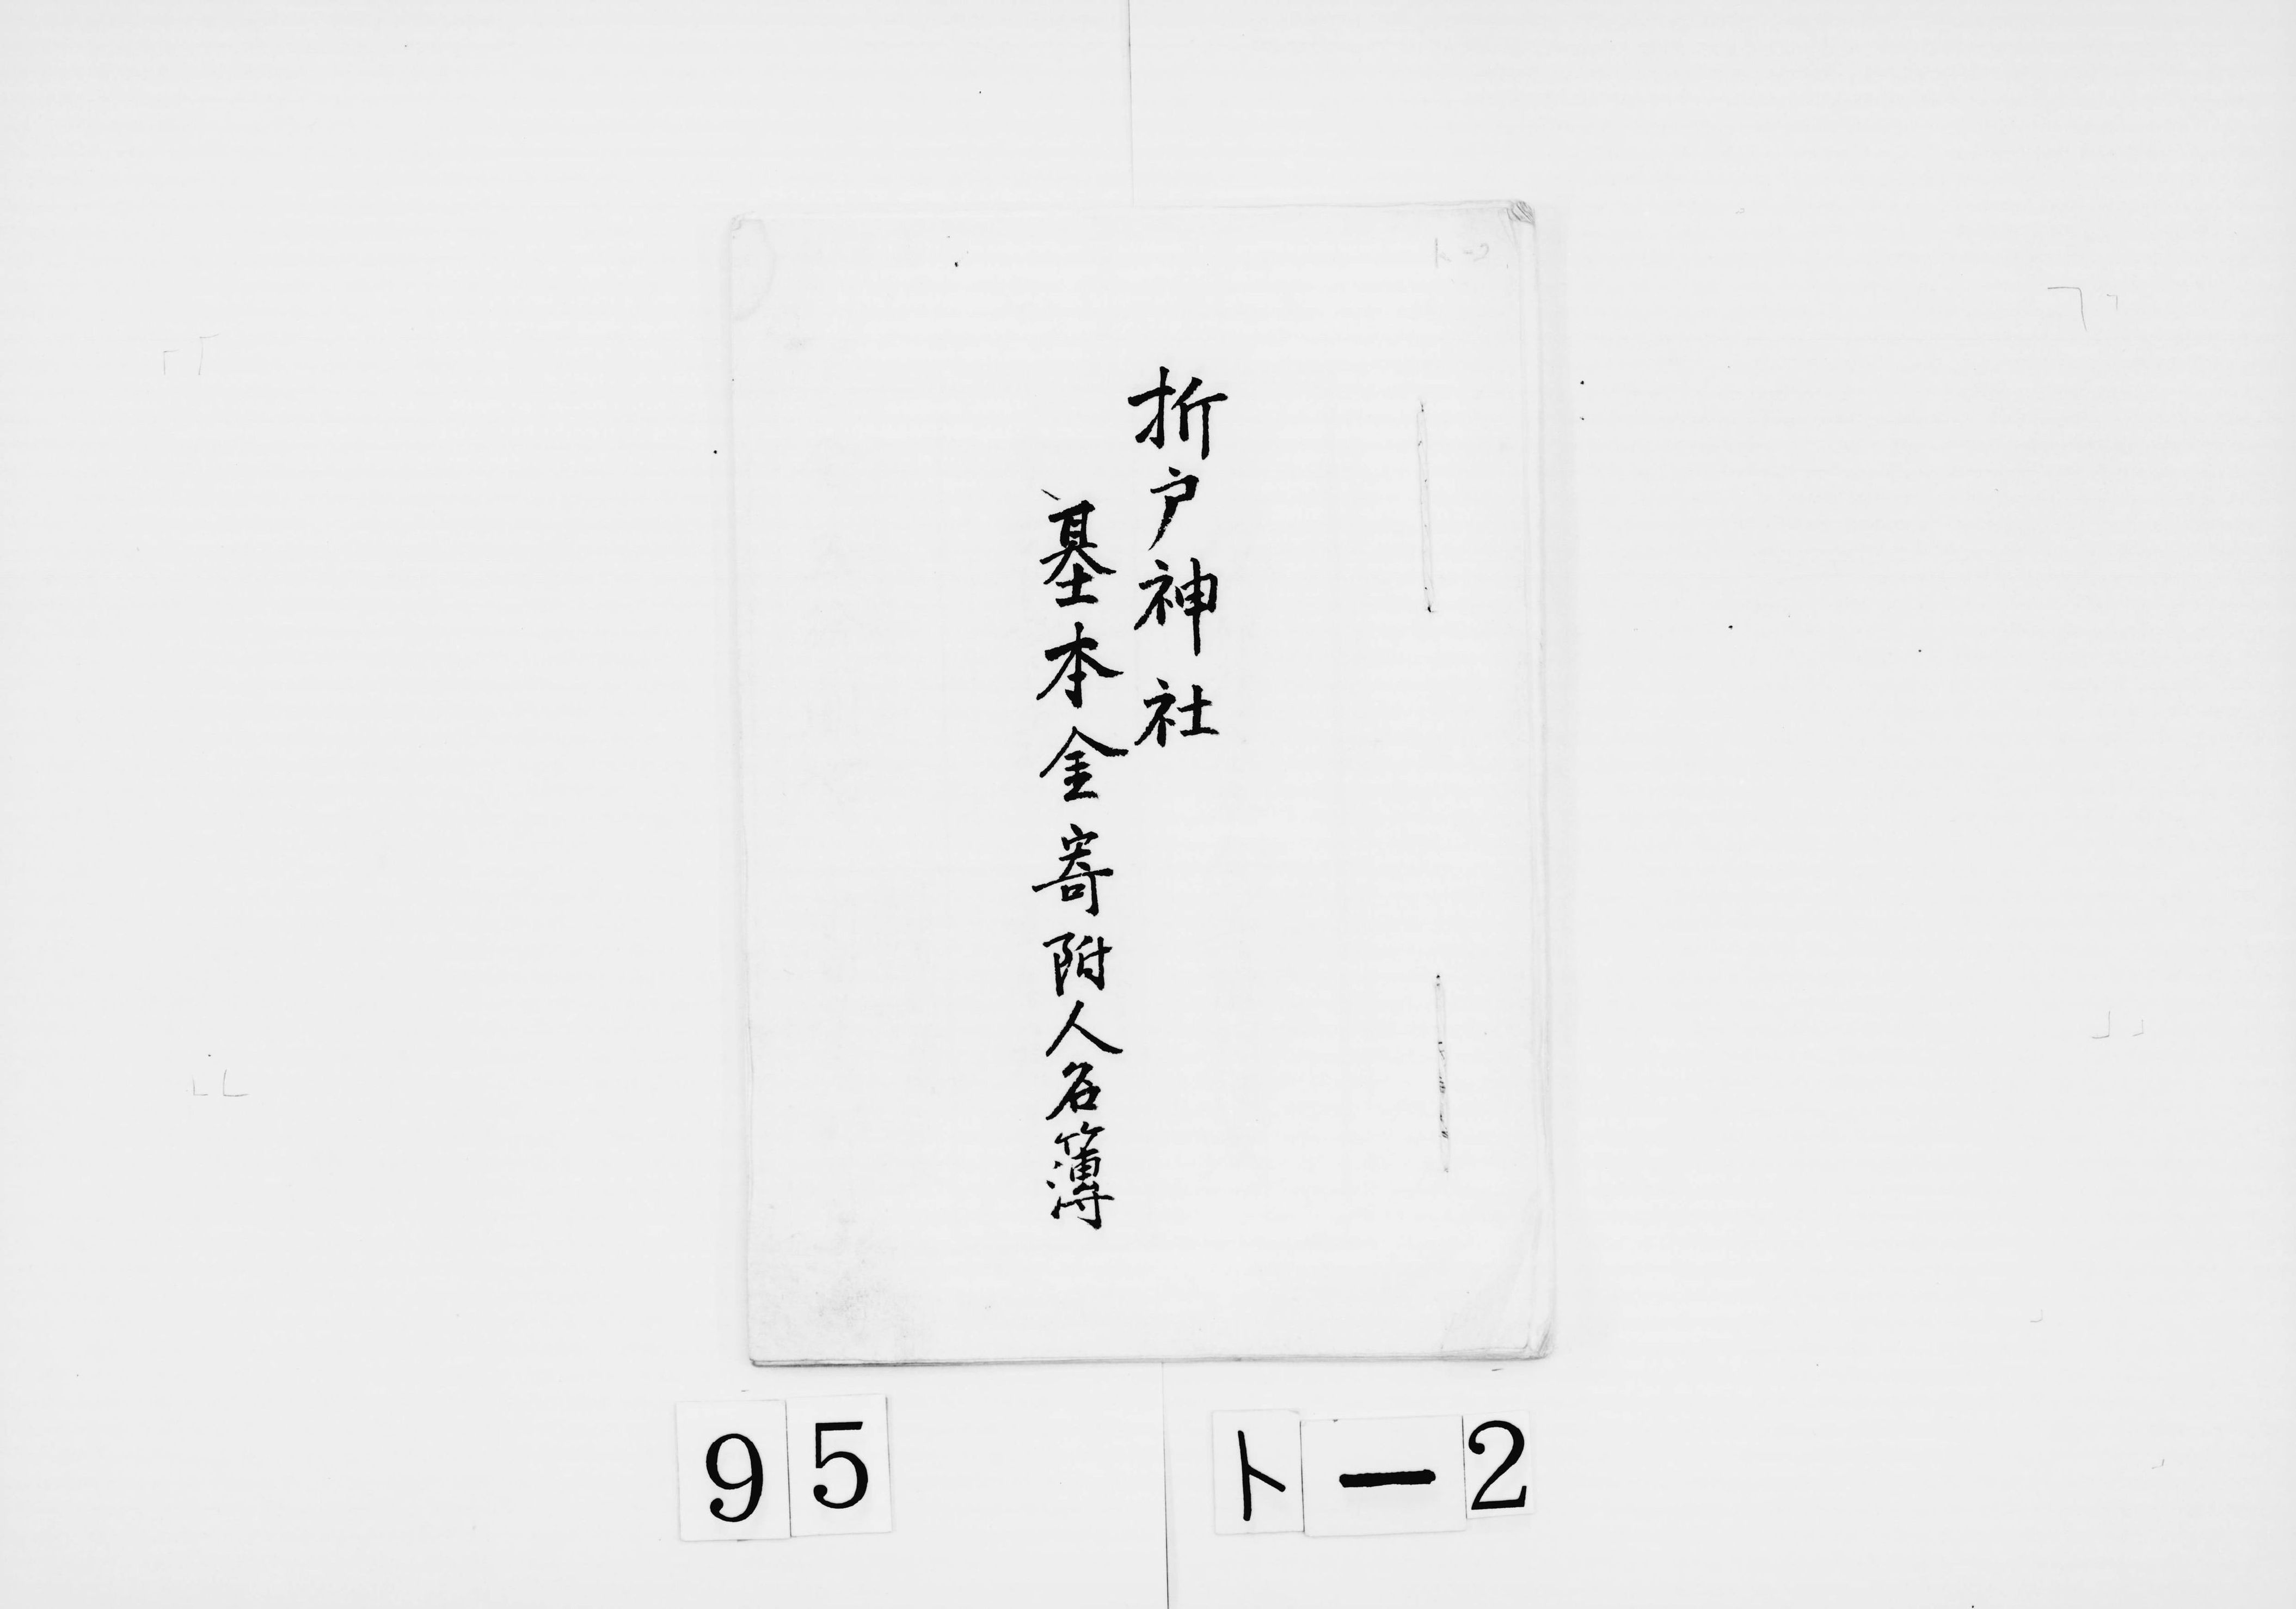 ト-2
折戸神社
基本金寄附人名簿
95
ト-2